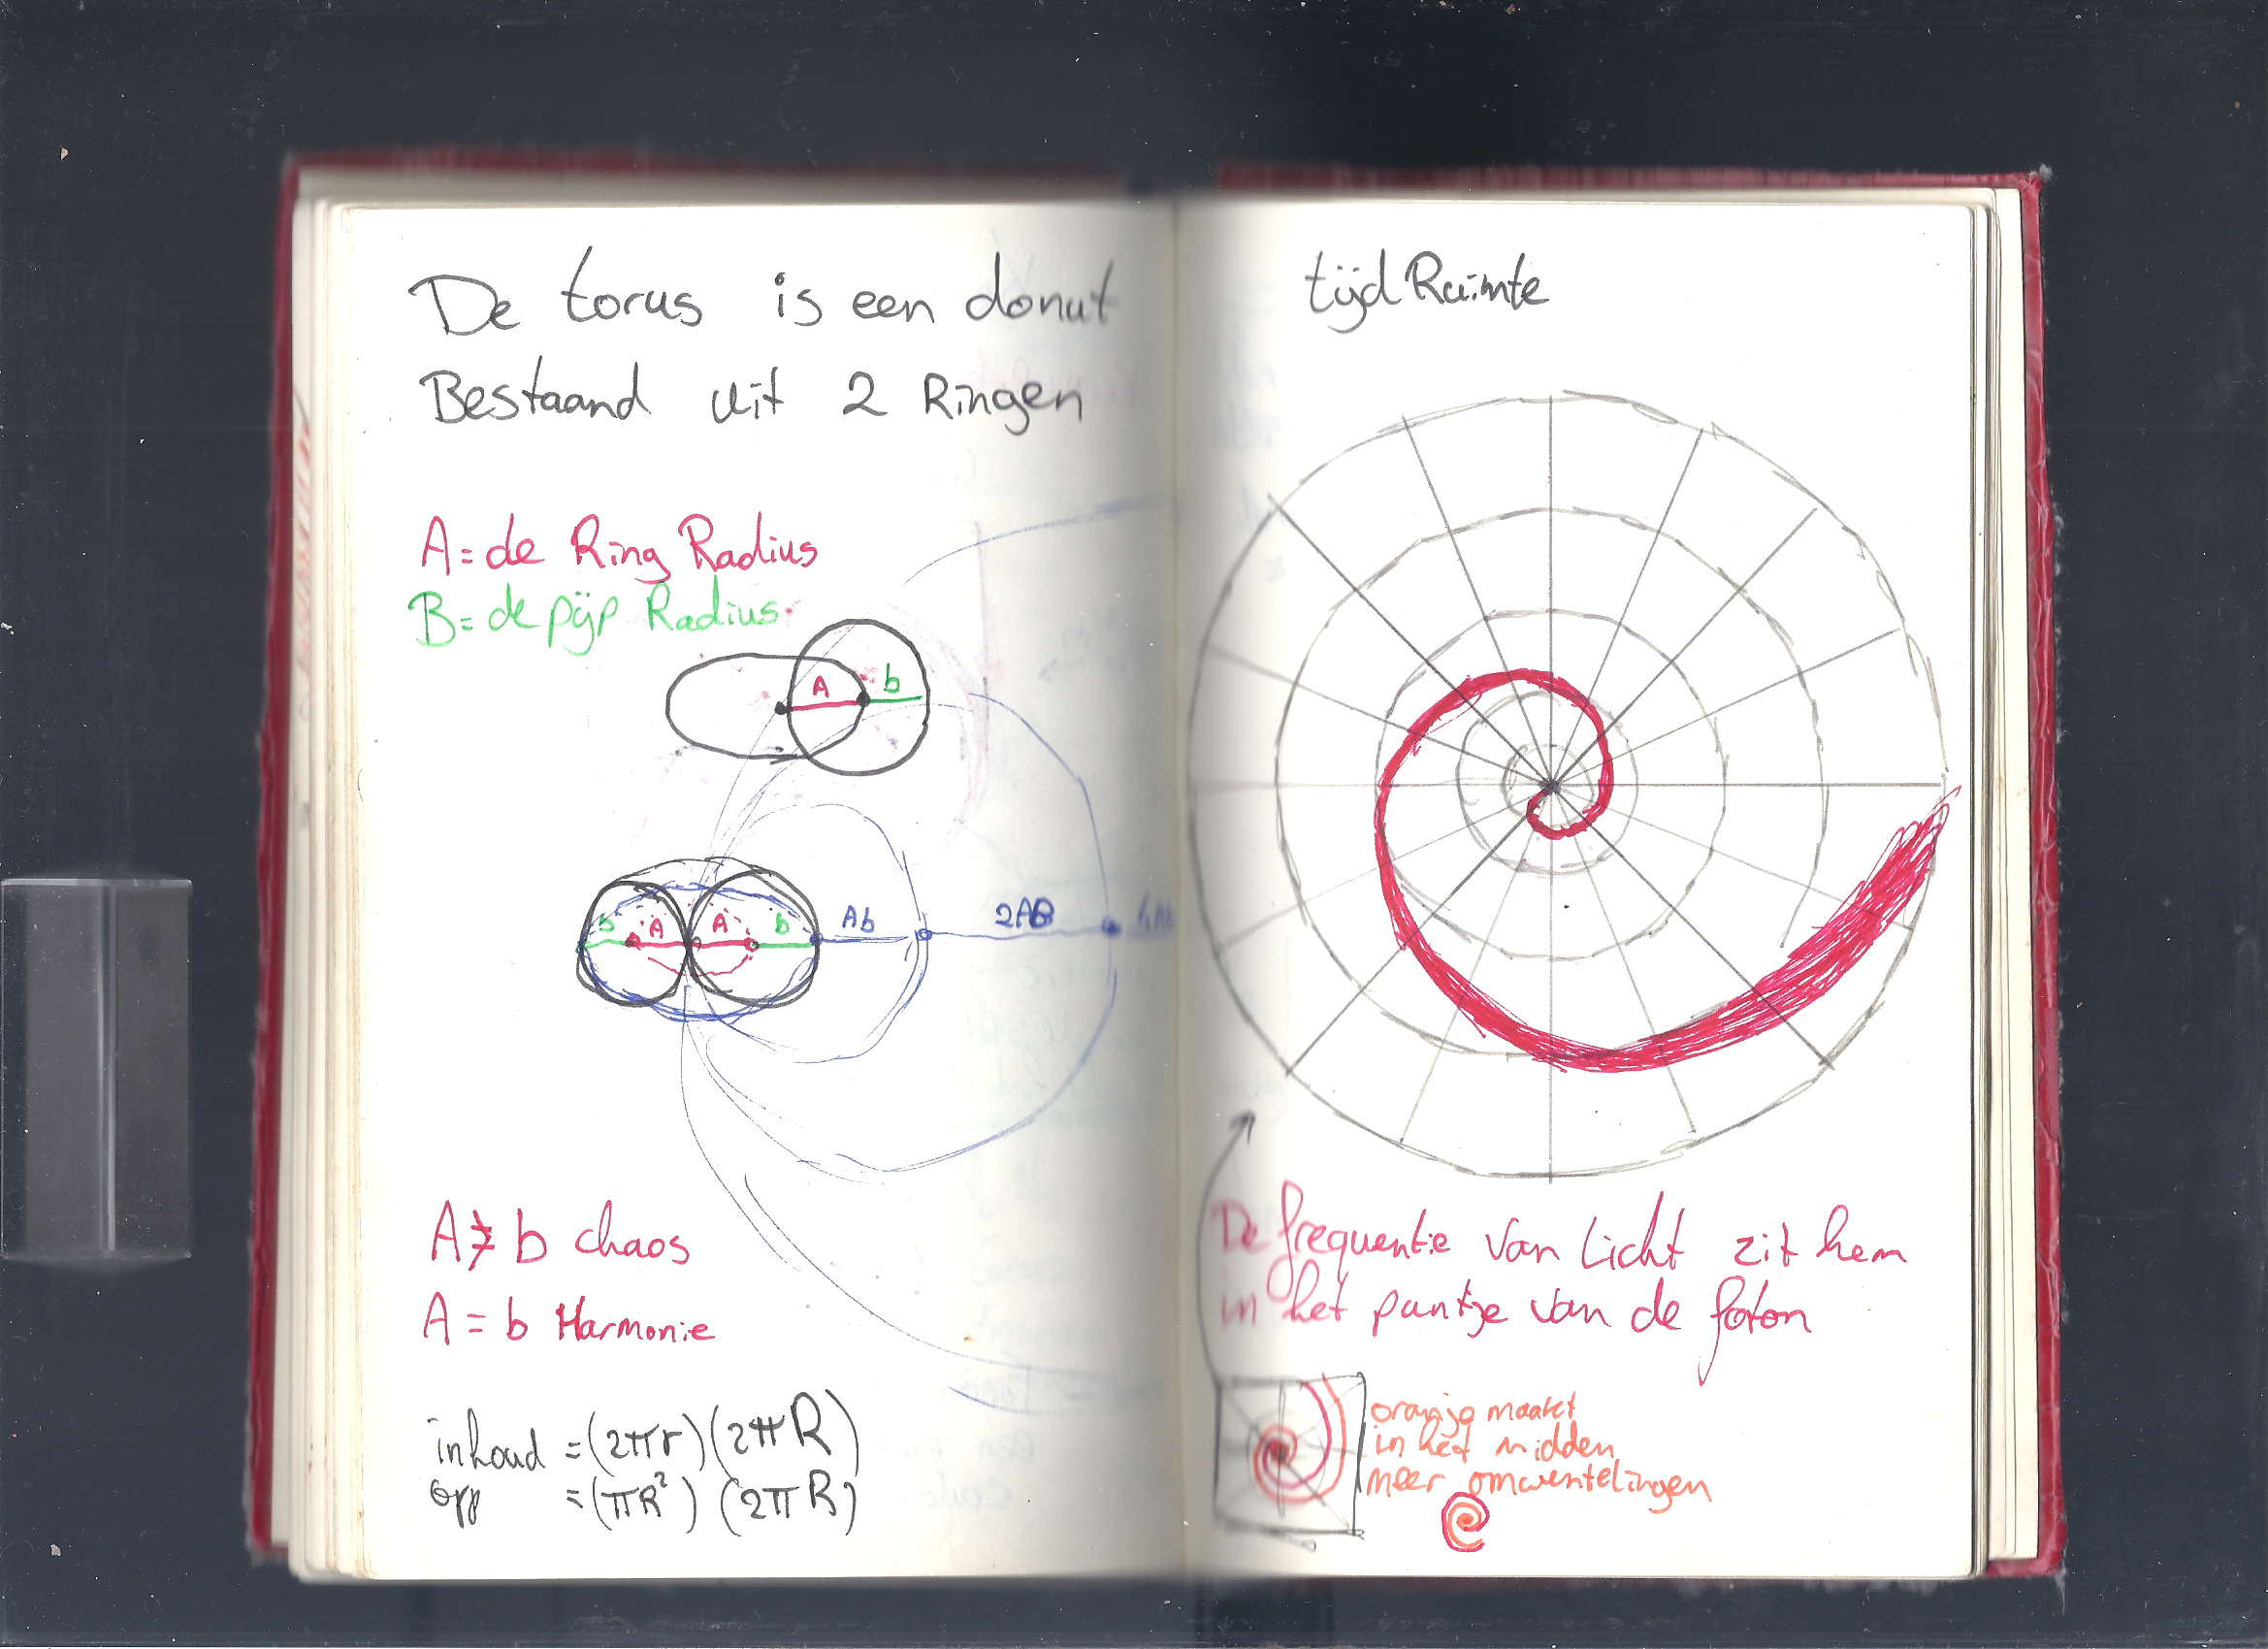 De torus is een donut
Bestaand uit 2 Ringen
A= de Ring Radius
B= de pijp Radius
A b
b A A b Ab 2AB
A ≯ b chaos
A = b Harmonie
inhoud = (2πr)(2πR)
opp = (πR²) (2πR)
tijd Ruimte
De frequentie van licht zit hem
in het puntje van de foton
oranje maakt
in het midden
meer omwentelingen